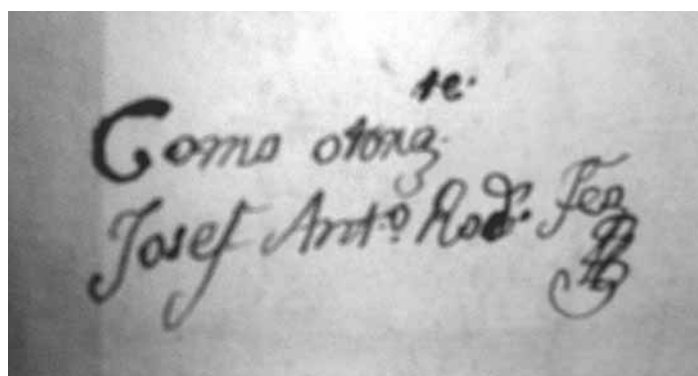 Como otorg.te
Josef Ant.o Rod.